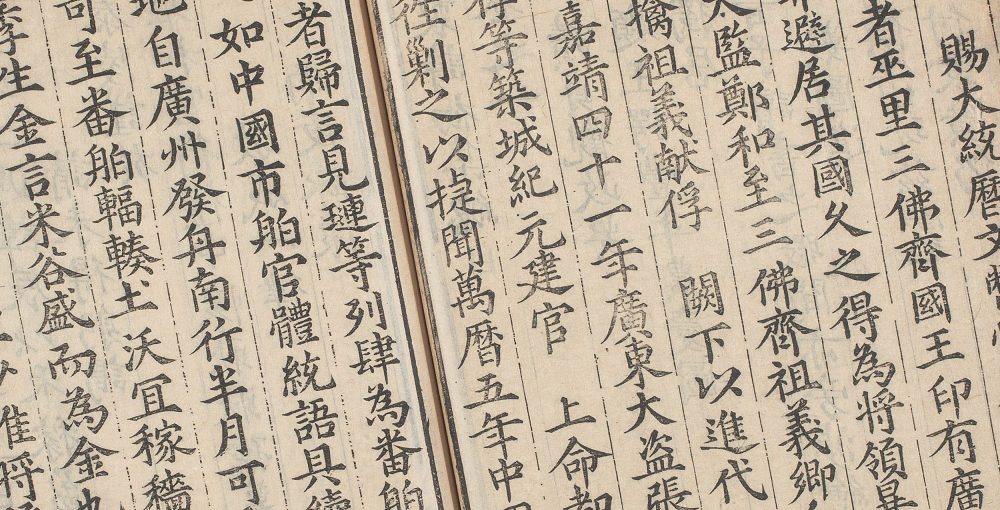 賜大統曆文
者巫里三佛齊國王印有廣
避居其國久之得為将領
太監鄭和至三佛齊祖義鄉
擒祖義献俘 闕下以進代
嘉靖四十一年廣東大盜張
等築城紀元建官 上命都
徃剿之以捷聞萬曆五年中
者歸言見璉等列肆為番舶
如中國市舶官體統語具續
地自廣州發丹南行半月可
至番舶輻輳土沃冝稼穡
生金言米谷盛而為金也
惟将